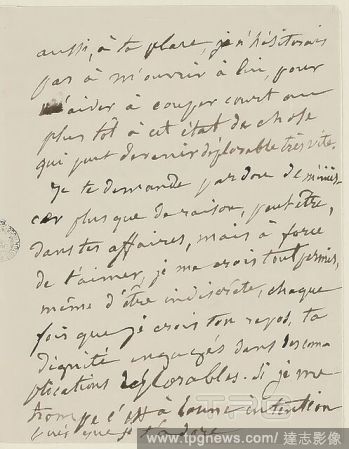 aussi, à ta place, je n'hésiterais
pas à m'ouvrir à lui, pour
m'aider à couper court au
plus tôt à cet état de chose
qui peut devenir déplorable très vite.
Je te demande pardon de m'immis-
cer plus que de raison, peut-être,
dans tes affaires, mais à force
de t'aimer, je me crois tout permis,
même d'être indiscrète, chaque
fois que je crois ton repos, ta
dignité engagés dans des com
plications déplorables. Si je me
trompe c'est à bonne intention
que je
www.tpgnews.com / 達志影像